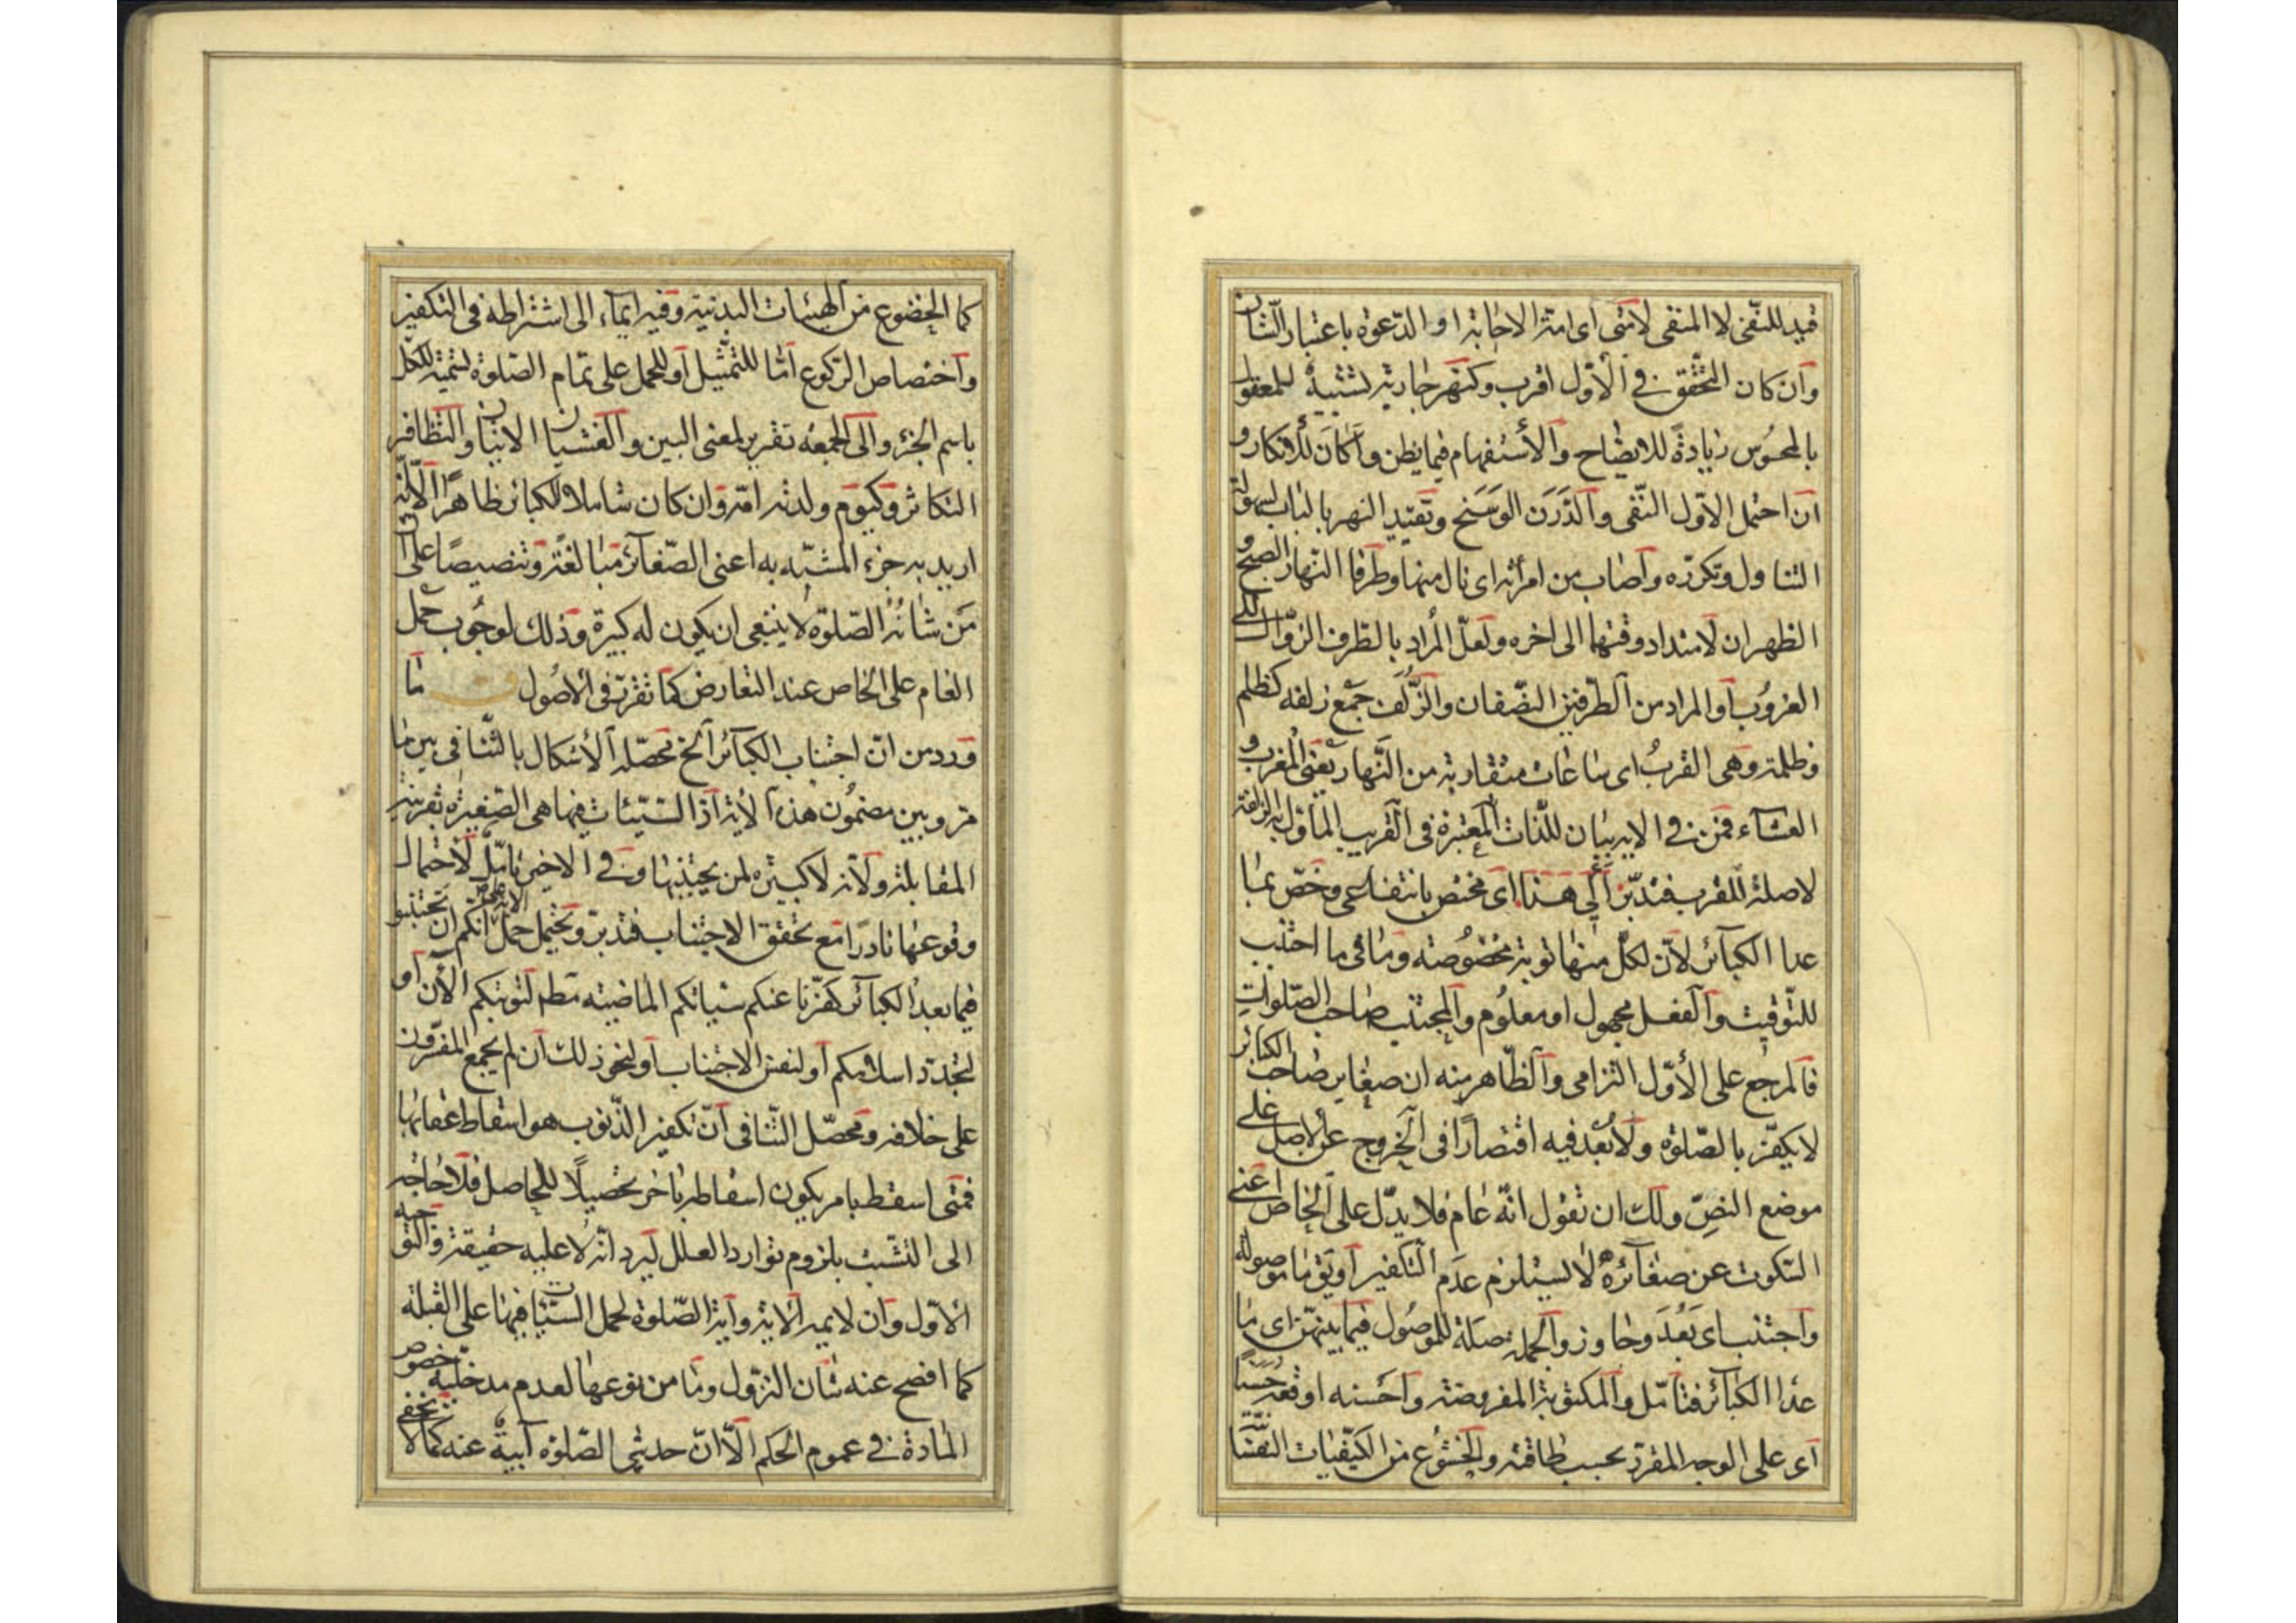 قيد للنّفى لا المنفى لامّتى اى امّة الاجابة او الدّعوة باعتبار الشّان
وان كان التحقّق فى الأوّل اقرب وكنهر جارية لتشبيه للمعقول
بالمحسُوس زيادةً للايضاح والأستفهام فيما يظن وأكانَ للأنكار و
ان احتمل الاوّل النّفى والدَّرَن الوَسَخ وتقييد النهر بالباب لسهولة
التناول وتكرّره واصاب من امرأته اى نال منها وطرفا النّهار الصبح و
الظهران لامتداد وقتها الى اخره ولعلّ المُراد بالطّرف الزّوال الى
الغروُب او المراد من الطّرفين النصّفان والزُّلَف جَمْع زلفه كظلم
وظلمة وهى القربُ اى ساعات متقاربة من النّهار يعنى المغرب و
العشآء فمن فى الاية بيان للذّات المعتبرة فى القريب المأول به الزلفة
لاصلة للقرب فتدبّر ألى هَذا اى مختص بانتفاعى وخصّ بما
عدا الكبآئر لانّ لكلّ منها توبة مخصُوصة وما فى ما اجتنب
للتّوقيت والفعل مجهول او معلُوم والمجتنب صاحب الصّلوات
فالمرجع على الأوّل التزامى والظّاهر منه ان صغاير صاحب الكبائر
لا يكفّر بالصّلوة ولا بُعد فيه اقتصارًا فى الخروج عن الاصل على
موضع النصِّ ولك ان تقول انّه عام فلا يدّل على الخاص اعنى
السّكوت عن صغآئره لا يستلزم عدَم التّكفير او يق ما موصولة
واجتنب اى بَعُدَ وجاوز والجملة صلَة للموصُول فيما بينهنّ اى ما
عدا الكبآئر فتامّل والمكتوبة المفروضة واحسنه اوقعه حَسَنًا
اى على الوجه المقرّر بحسب طاقته والخشوُع من الكيفيّات النفسَانيّة
كما الخضوع من الهيئات البدنية وفيه ايمآء الى اشتراطه فى التكفير
واختصاص الرّكوع امّا للتمثيل او للحمل على تمام الصّلوة لتسمية الكلّ
باسم الجزء والى الجمعه تقرير لمعنى البين والغشيان الاتيان والتّظافر
التكاثر وكيوم ولدته امّه وان كان شاملا للكبائر ظاهرًا الّا انّه
اريد به جزء المشبّه به اعنى الصّغآئر مبَالغة وتنصيصًا على انّ
مَن شانُهُ الصّلوة لا ينبغى ان يكون له كبيرة وذلك لوجوب حمل
العام على الخاص عند التعارض كما تقرّر فى الأصُول ما
ورد من انّ اجتناب الكبآئر الخ محصّله الأشكال بالتّنافى بين ما
مرّ وبين مضموُن هذه الأية اذ السّيّئات فيها هى الصّغيرة بقرينة
المقابلة ولانّه لا كبيرة لمن يجتنبها وفى الاخير تامّل لاحتمال
وقوعها نادرًا مع تحقّق الاجتناب فتدبّر ويحتمل حمل الاية على انكم ان تجتنبوا
فيما بعدُ الكبآئر كفّرنا عنكم سيّاتكم الماضية مَطم لتوبتكم الآن او
لتجدّد اسلامكم او لنفس الاجتناب او لنحو ذلك ان لم يجمع المفسّرون
على خلافه ومحصّل التّنافى انّ تكفير الذّنوب هو اسقاط عقابها
فمتى اسقط بامر يكون اسقاطه باخر تحصيلًا للحاصل فلا حاجة
الى التشّبث بلزوم توارد العلل ليرد انّه لا علّية حقيقة والتوجيه
الأوّل وان لايم الاية واية الصّلوة لحمل السّيّئات فيها على القبلة
كما افصح عنه شان النزّول وما من نوعها لعدم مدخليّة خصوص
المادة فى عموم الحكم الّا انّ حديثى الصّلوة آبيةٌ عنه كما لا يخفى